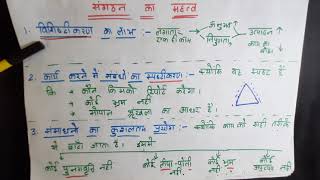 संगठन का महत्व
1. विशिष्टीकरण का लाभ :- लगातार एक ही काम → अनुभव निपुणता → उत्पादन
2. कार्य करने में संबंधों का स्पष्टीकरण :- क्योंकि यह स्पष्ट है
कि * कौन किसको रिपोर्ट करेगा।
* कोई भ्रम नहीं
* सोपान श्रृंखला का आधार है।
3. संसाधनों का कुशलतम प्रयोग :- क्योंकि काम को सही तरीके
से बाँटा जाता है। इसमें
कोई पुनरावृत्ति नहीं कोई नहीं कोई भ्रम नहीं कोई नहीं